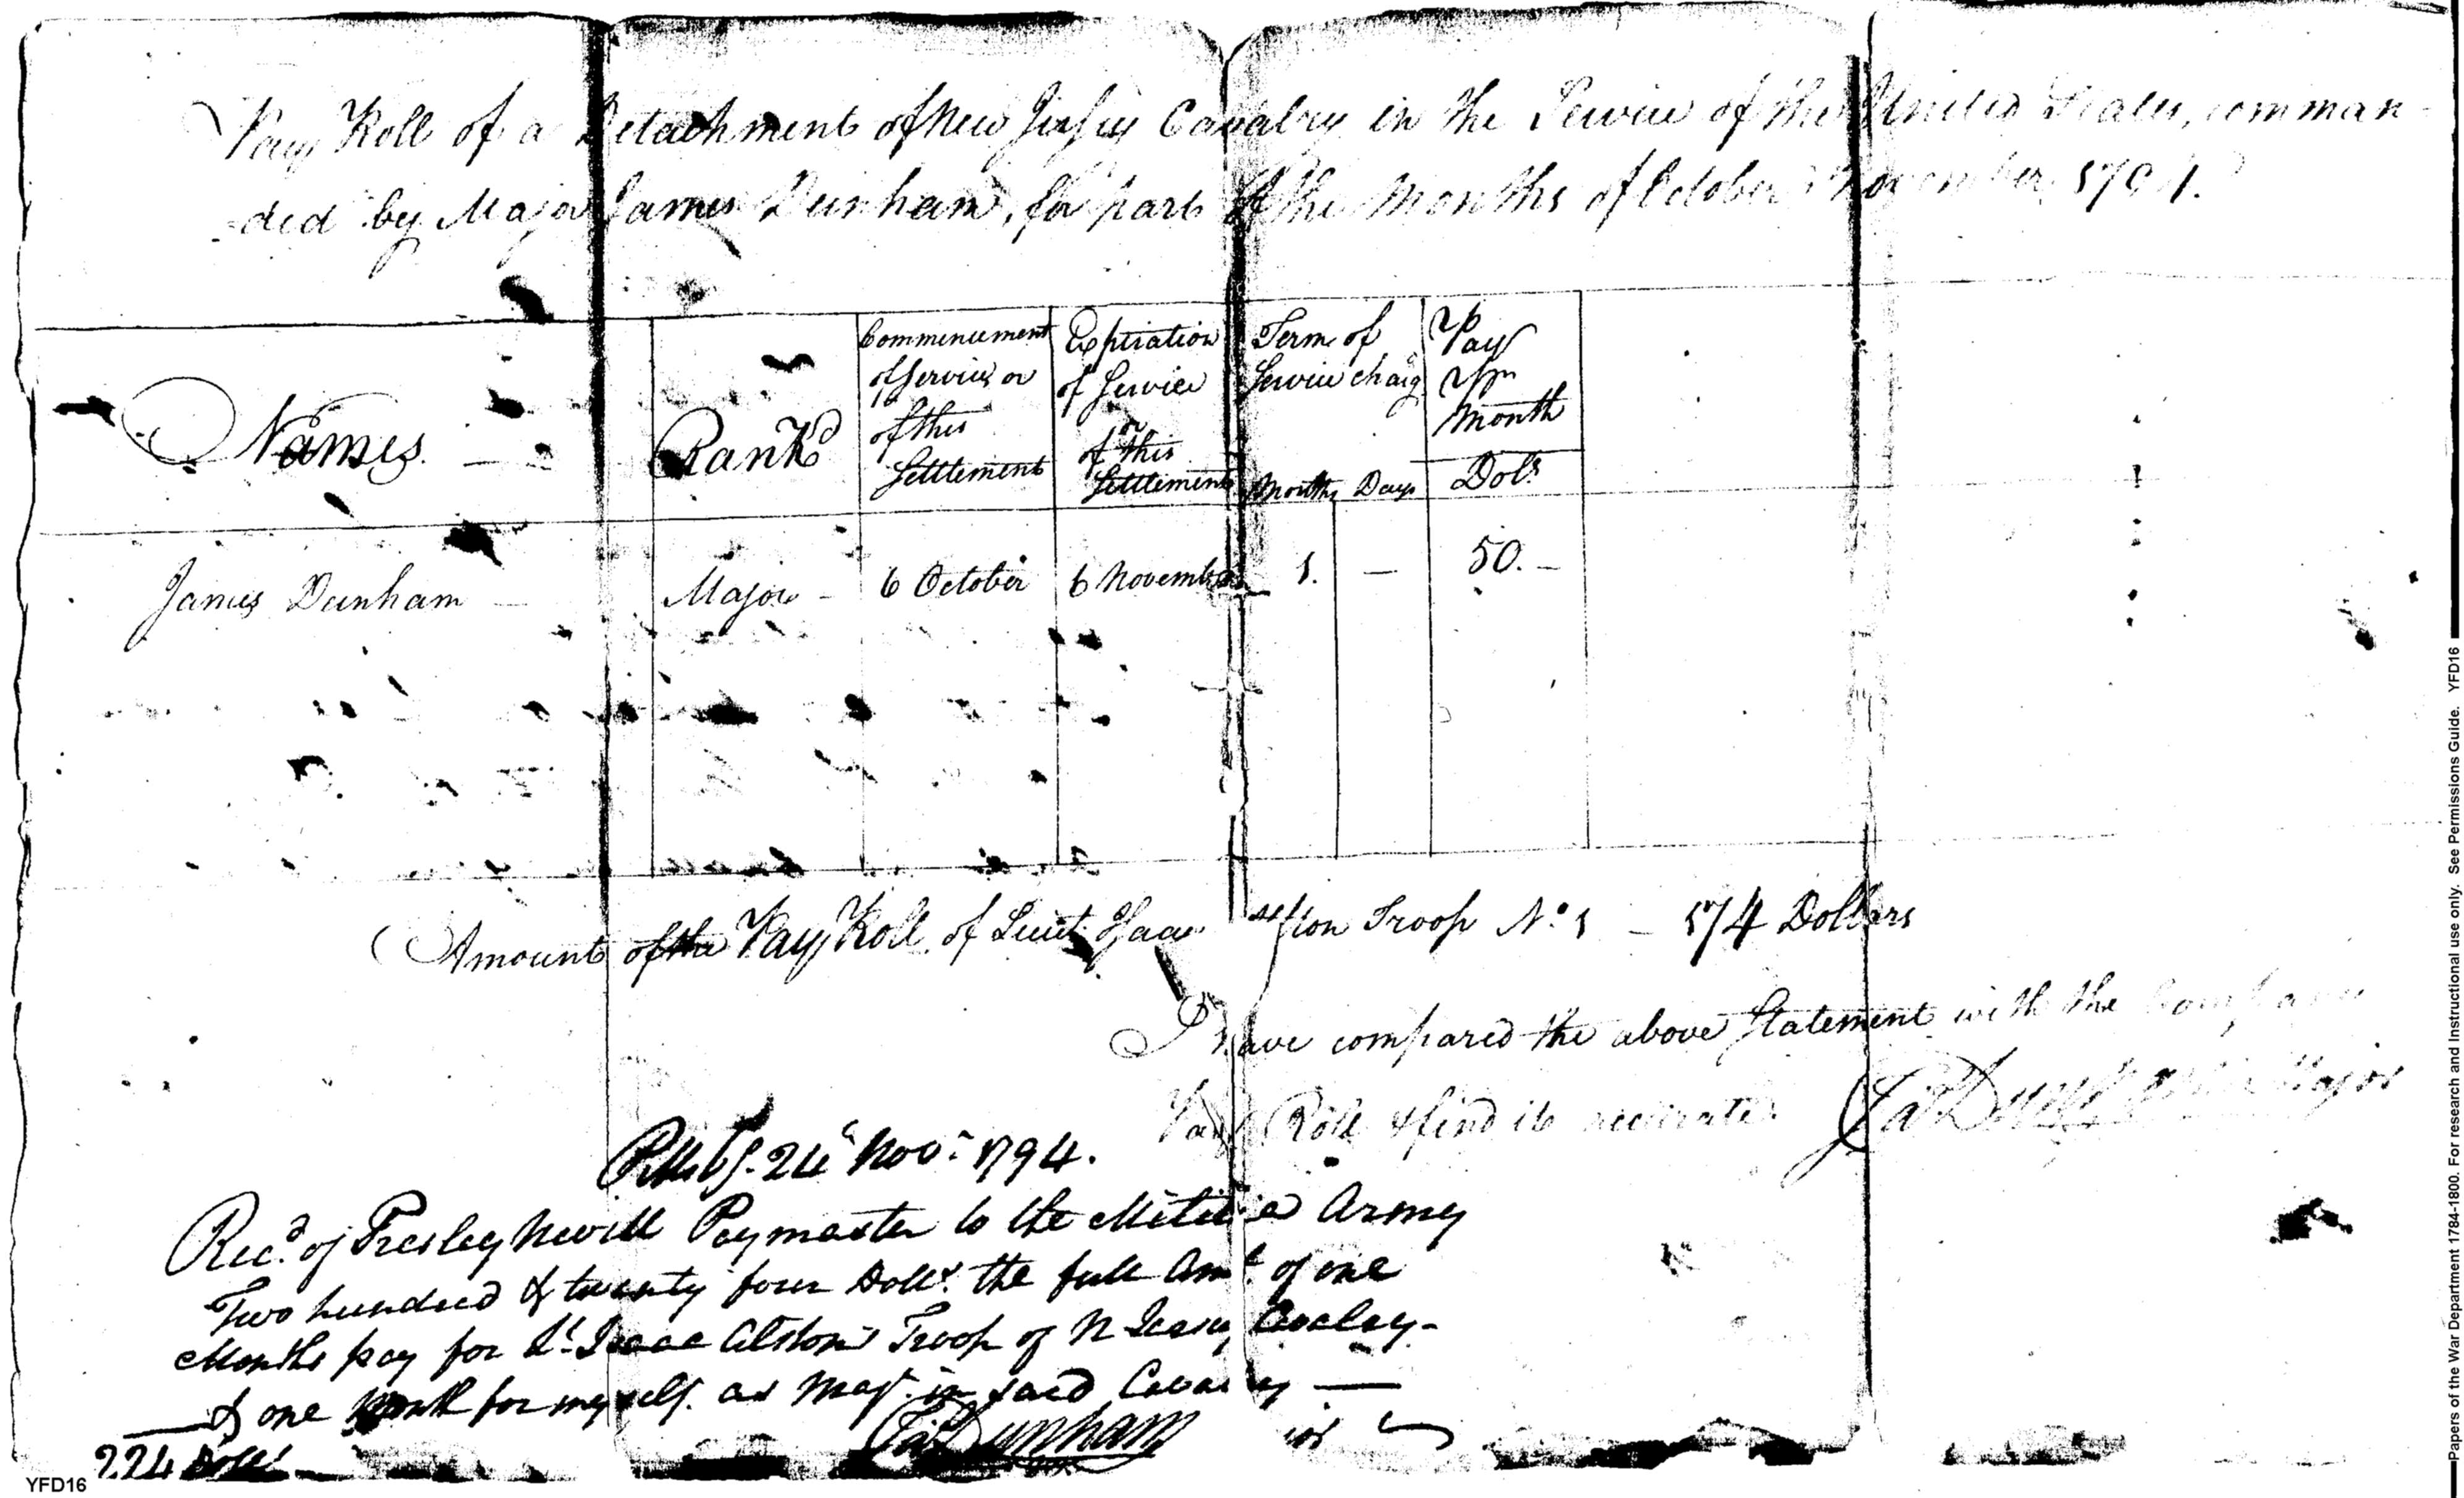 Pay Roll of a Detachment of New Jersey Cavalry in the Service of the United States, comman-
ded by Major James Dunham, for part of the Months of October November 1794.
Names Rank Commencement of Service or of this Settlement Expiration of Service or of this Settlement Term of Service charg<sup>d</sup> Months Days Pay pr month Dol<sup>s</sup>
James Dunham Major 6 October 6 November 1. — 50. —
Amount of the Pay Roll of Lieut. Isaac Alston Troop N<sup>o</sup> 1 — 174 Dollars
I have compared the above Statement with the Company
Pay Roll & find it accurate. Ja Dunham Major
Pittsbg. 24 Nov<sup>r</sup> 1794.
Rec<sup>d</sup> of Presley Nevill Paymaster to the Militia Army
Two hundred & twenty four Doll<sup>s</sup>. the full Am<sup>t</sup> of one
Months pay for L<sup>t</sup>. Isaac Alstons Troop of N Jersey Cavalry-
& one Month for myself. as Maj<sup>r</sup>. in said Cavalry —
Ja Dunham
224 Doll<sup>s</sup>
YFD16
Papers of the War Department 1784-1800. For research and instructional use only. See Permissions Guide. YFD16